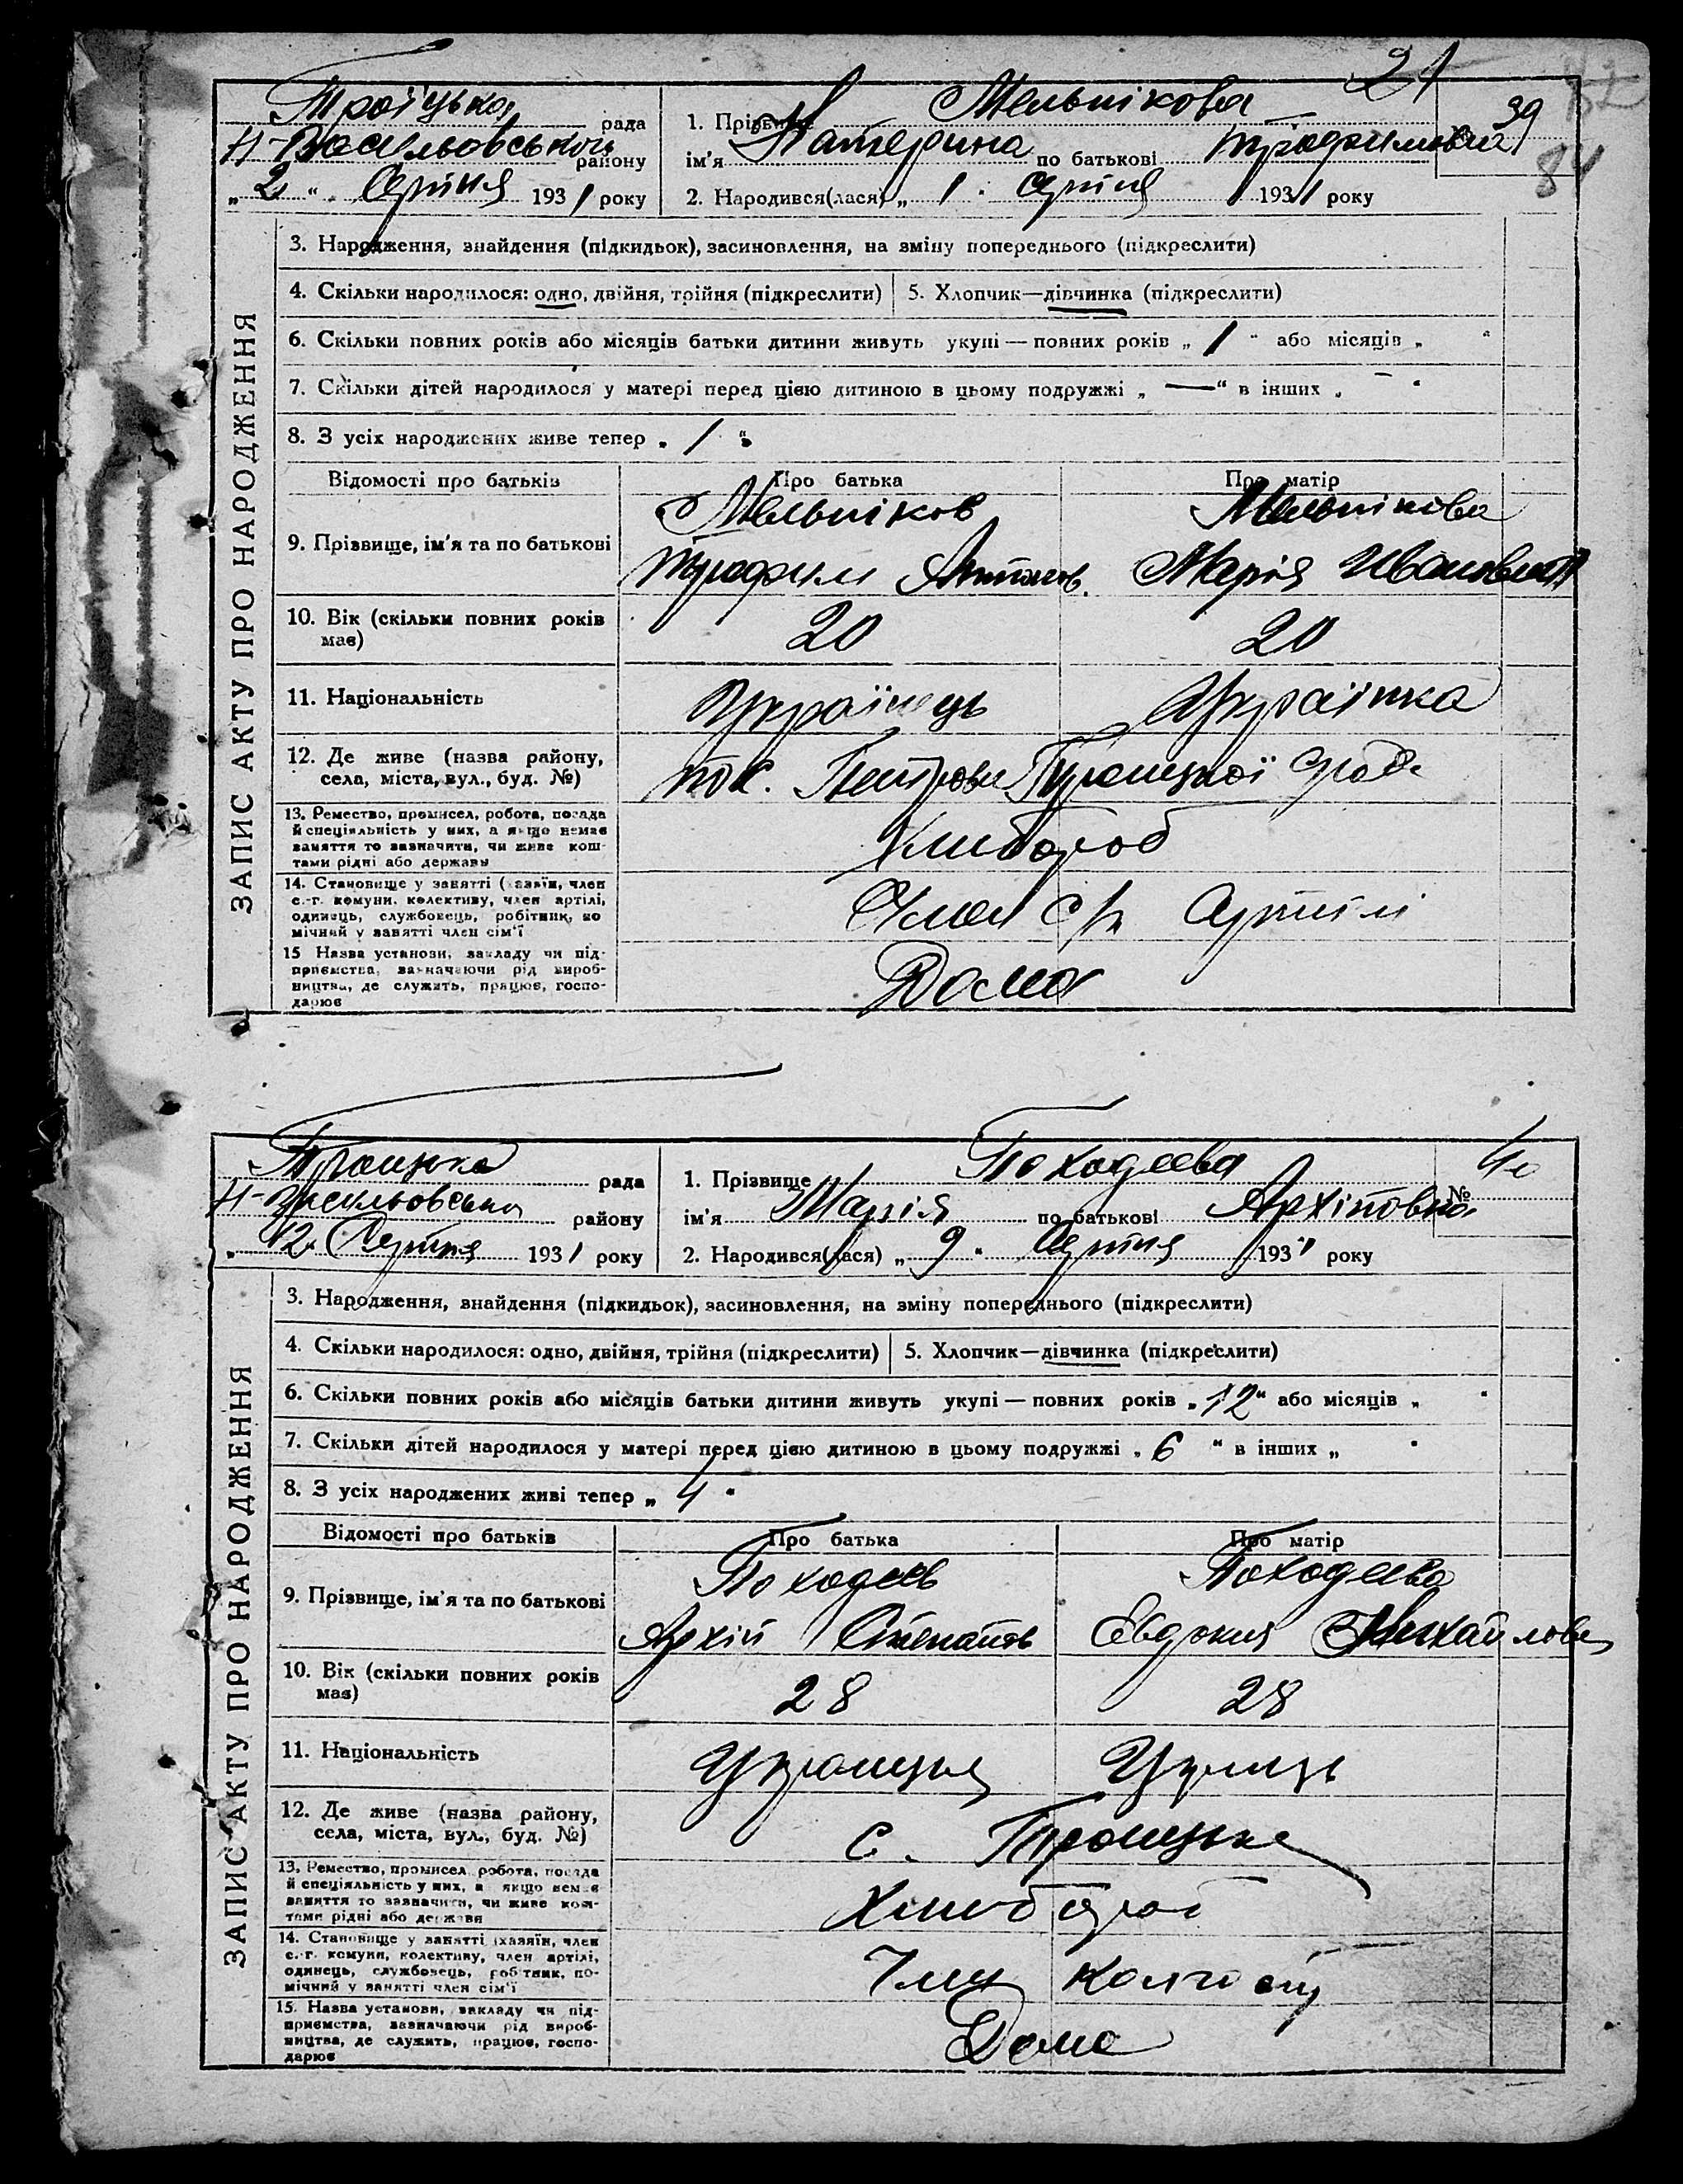 21
Троїцька рада
Н-Васильовського району
„2“ Серпня 1931 року
1. Прізвище Мельнікова
39
ім'я Катерина по батькові Трофимовна
84
2. Народився(лася) „1“ серпня 1931 року
ЗАПИС АКТУ ПРО НАРОДЖЕННЯ
3. Народження, знайдення (підкидьок), засиновлення, на зміну попереднього (підкреслити)
4. Скільки народилося: одно, двійня, трійня (підкреслити) 5. Хлопчик—дівчинка (підкреслити)
6. Скільки повних років або місяців батьки дитини живуть укупі — повних років „1“ або місяців „ “
7. Скільки дітей народилося у матері перед цією дитиною в цьому подружжі „—“ в інших „—“
8. З усіх народжених живе тепер „1“
Відомості про батьків Про батька Про матір
9. Прізвище, ім'я та по батькові
Мельніков Мельнікова
Трофим Антонов. Марія Ивановна
10. Вік (скільки повних років має) 20 20
11. Національність Українець Українка
12. Де живе (назва району, села, міста, вул., буд. №)
пос. Петровка Троицкої
13. Ремество, промисел, робота, посада й спеціяльність у них, а якщо немає заняття то зазначити, чи живе коштами рідні або держави
Хлибороб
14. Становище у занятті (хазяїн, член с.-г. комуни, колективу, член артілі, одинець, службовець, робітник, помічний у занятті член сім'ї
Член с/г Артілі
15 Назва установи, закладу чи підприємства, зазначаючи рід виробництва, де служить, працює, господарює
Дома
Троицька рада
Н-Васильовська району
„12“ Серпня 1931 року
1. Прізвище Походеева
№ 40
ім'я Марія по батькові Архіповна
2. Народився(лася) „9“ Серпня 1931 року
ЗАПИС АКТУ ПРО НАРОДЖЕННЯ
3. Народження, знайдення (підкидьок), засиновлення, на зміну попереднього (підкреслити)
4. Скільки народилося: одно, двійня, трійня (підкреслити) 5. Хлопчик—дівчинка (підкреслити)
6. Скільки повних років або місяців батьки дитини живуть укупі — повних років „12“ або місяців „ “
7. Скільки дітей народилося у матері перед цією дитиною в цьому подружжі „6“ в інших „ “
8. З усіх народжених живі тепер „4“
Відомості про батьків Про батька Про матір
9. Прізвище, ім'я та по батькові
Походеев Походеева
Архип Степанов Евдокия Михайловна
10. Вік (скільки повних років має) 28 28
11. Національність
12. Де живе (назва району, села, міста, вул., буд. №)
с. Троицьке
13. Ремество, промисел, робота, посада й спеціяльність у них, а якщо немає заняття то зазначити, чи живе коштами рідні або держави
Хлибороб
14. Становище у занятті (хазяїн, член с.-г. комуни, колективу, член артілі, одинець, службовець, робітник, помічний у занятті член сім'ї
Член колгоспу
15. Назва установи, закладу чи підприємства, зазначаючи рід виробництва, де служить, працює, господарює
Дома